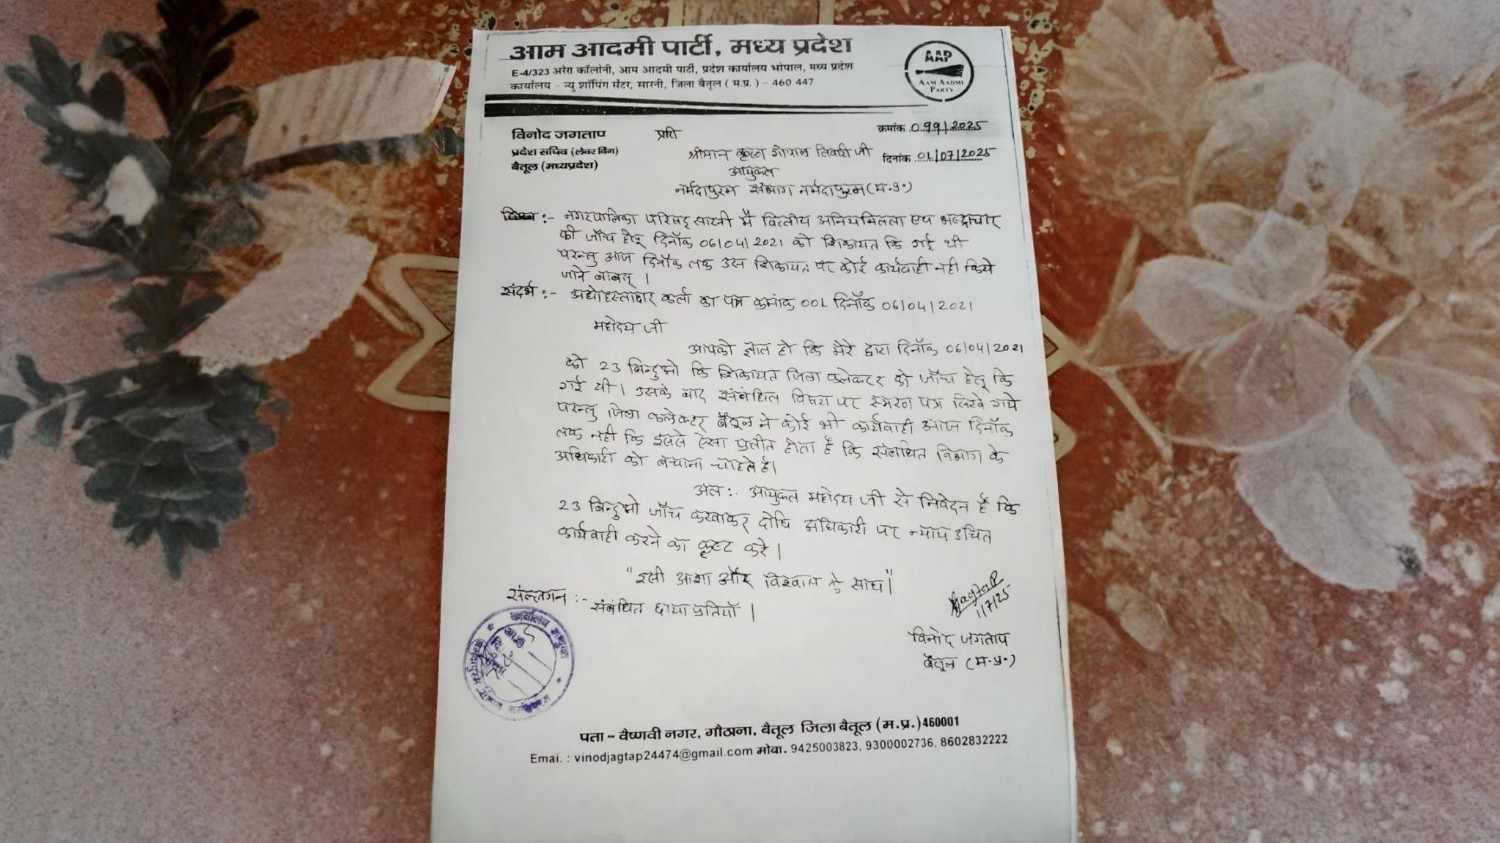 आम आदमी पार्टी, मध्य प्रदेश
E-4/323 अरेरा कॉलोनी, आम आदमी पार्टी, प्रदेश कार्यालय भोपाल, मध्य प्रदेश
कार्यालय - न्यु शॉपिंग सेंटर, सारनी, जिला बैतूल ( म.प्र. ) - 460 447
AAP
AAM AADMI
PARTY
विनोद जगताप
प्रदेश सचिव (लेबर विंग)
बैतूल (मध्यप्रदेश)
क्रमांक 099/2025
दिनांक 01/07/2025
प्रति
श्रीमान कृष्ण गोपाल तिवारी जी
आयुक्त
नर्मदापुरम संभाग नर्मदापुरम (म.प्र.)
विषय :- नगरपालिका परिषद सारनी मैं वित्तीय अनियमितता एंव भ्रष्टाचार
की जाँच हेतू दिनाँक 06/04/2021 को शिकायत कि गई थी
परन्तु आज दिनाँक तक उस शिकायत पर कोई कार्यवाही नही किये
जाने बाबत् |
संदर्भ :- अद्योहस्ताक्षर कर्ता का पत्र क्रमांक 001 दिनाँक 06/04/2021
महोदय जी
आपको ज्ञात हो कि मेरे द्वारा दिनाँक 06/04/2021
को 23 बिन्दुओ कि शिकायत जिला कलेक्टर को जाँच हेतू कि
गई थी | उसके बाद संबंधित विषय पर स्मरण पत्र लिखे गये
परन्तु जिला कलेक्टर बैतूल ने कोई भी कार्यवाही आज दिनाँक
तक नही कि इससे ऐसा प्रतीत होता है कि संबंधित विभाग के
अधिकारी को बचाना चाहते है।
अत :- आयुक्त महोदय जी से निवेदन है कि
23 बिन्दुओ जाँच करवाकर दोषि अधिकारी पर न्याय उचित
कार्यवाही करने का कृष्ट करे |
"इसी आशा और विश्वास के साथ|"
संल्लगन :- संबंधित छाया प्रतियाँ |
Jagtap
1/7/25
विनोद जगताप
बैतूल (म.प्र.)
कार्यालय आयुक्त
पता - वैष्णवी नगर, गौठाना, बैतूल जिला बैतूल (म.प्र.)460001
Emai. : vinodjagtap24474@gmail.com मोबा. 9425003823, 9300002736, 8602832222